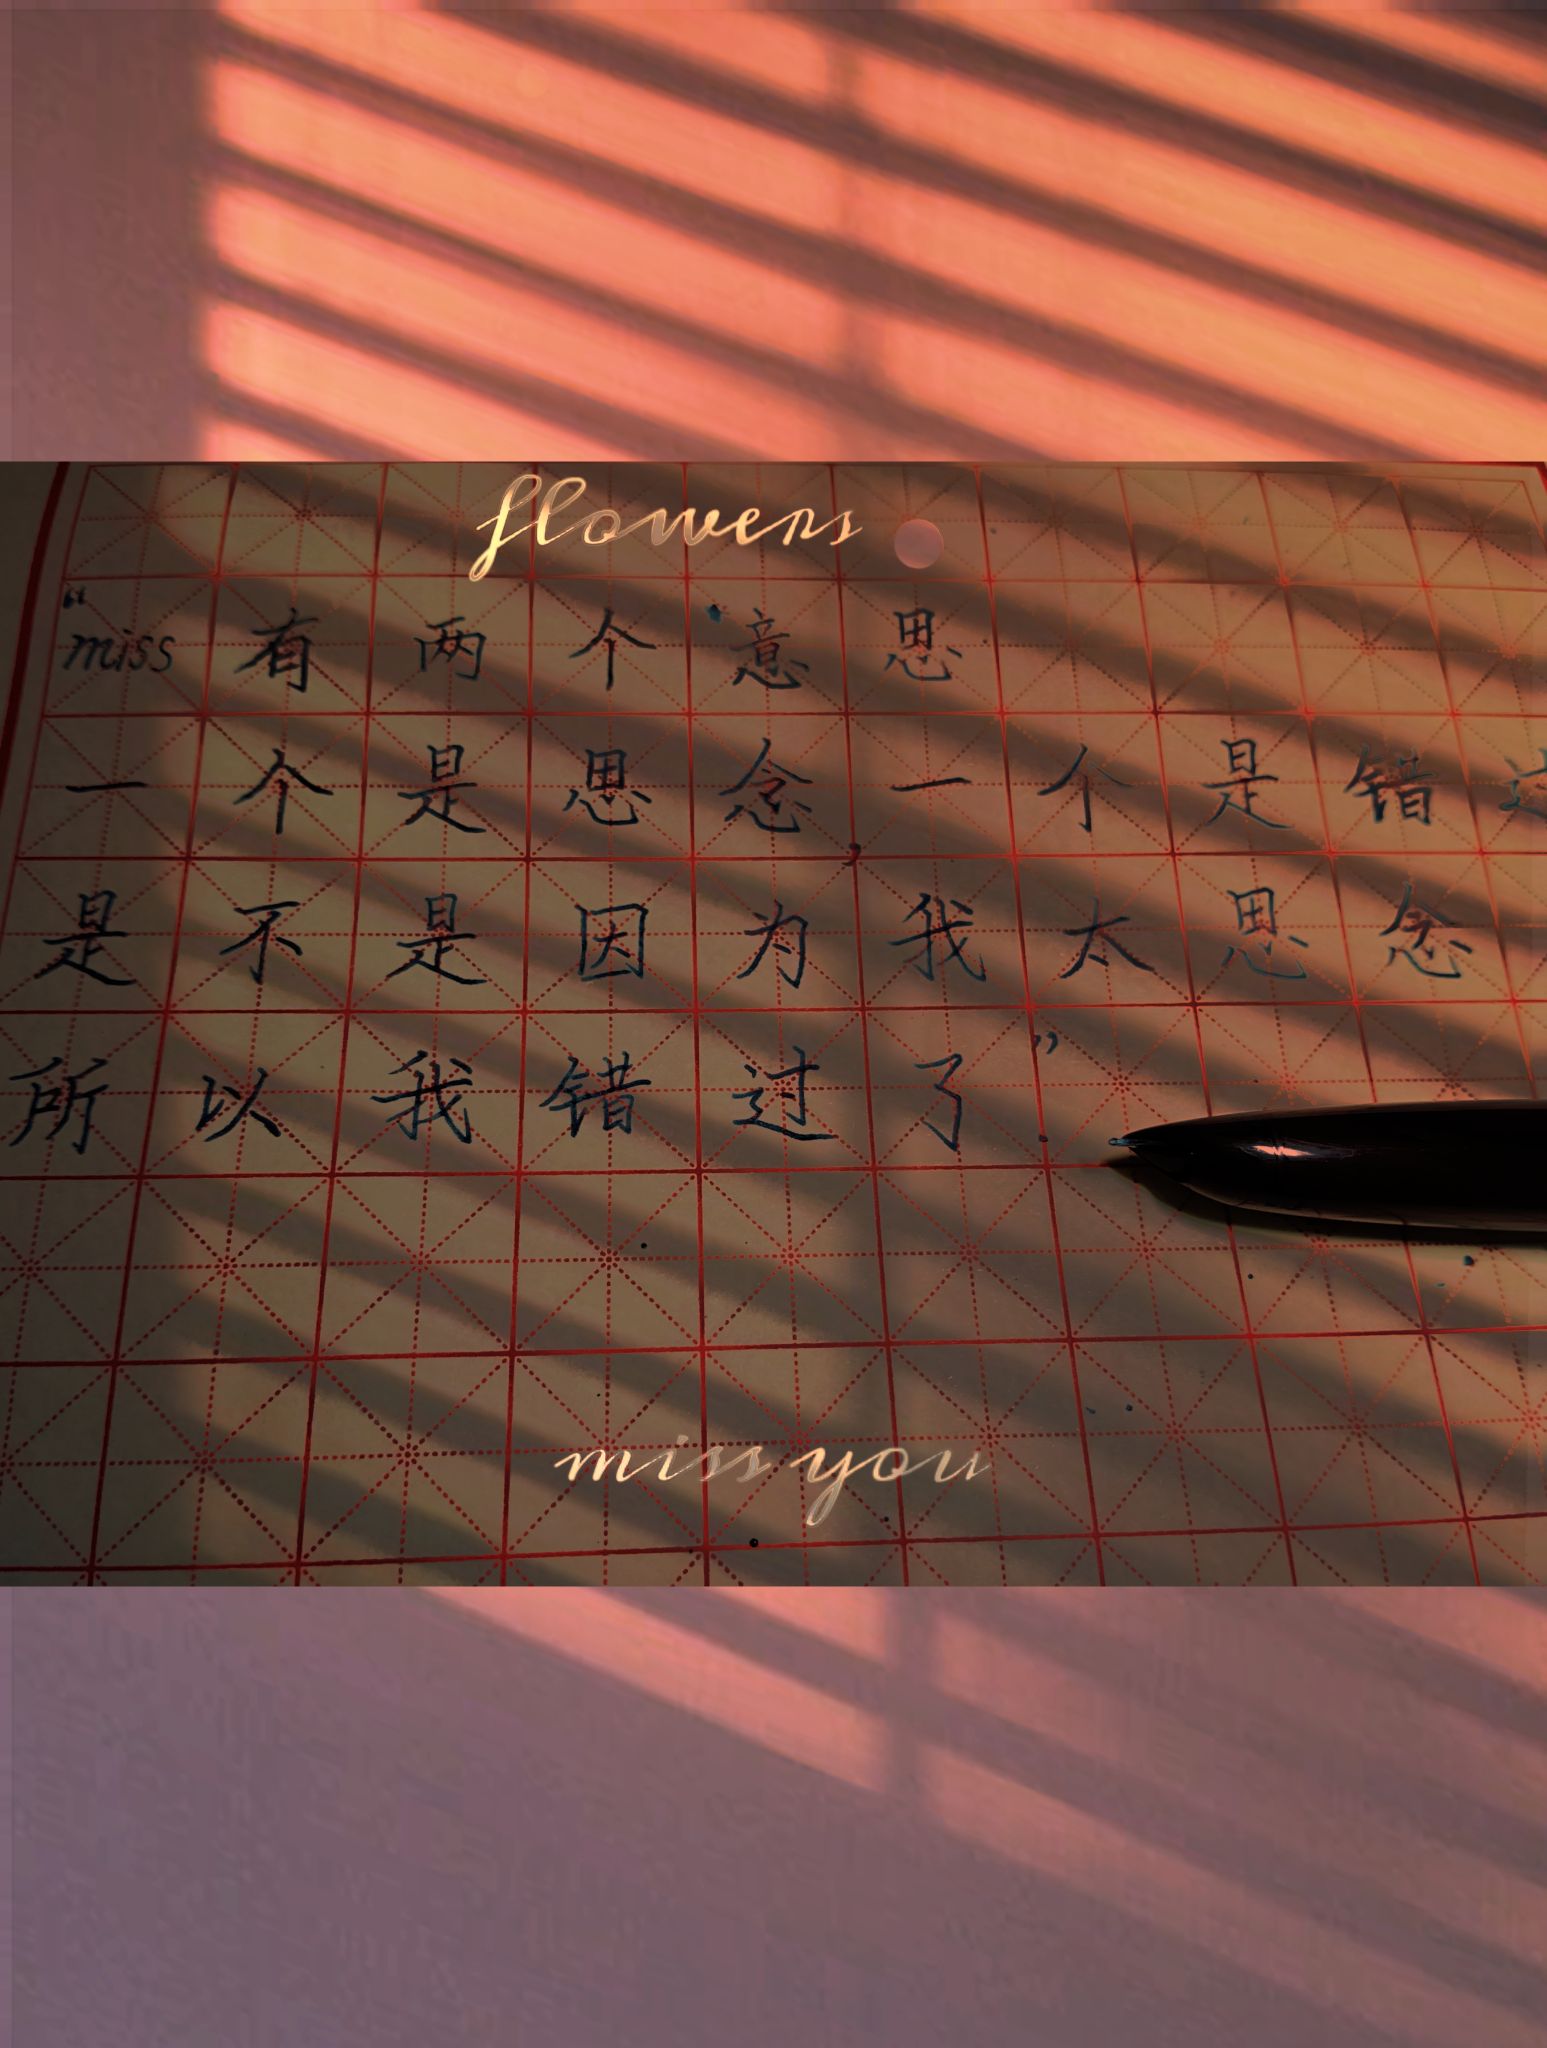 flowers
“miss 有两个意思
一个是思念,一个是错过
是不是因为我太思念
所以我错过了”
miss you